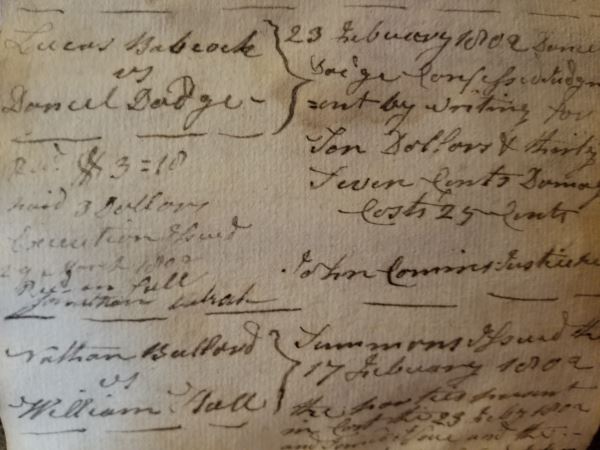 Lucas Babcock
vs
Daniel Dodge
23 February 1802 Daniel
Dodge Confessed Judgm
=ent by writing for
Ten Dollars & thirty
Seven Cents Damag
Costs 25 Cents
Recd. $3=18
paid 3 Dollars
Execution Issued
29 March 1802
in full
John Comins Justice
Nathan Bullard
vs
William Hall
Summons Issued the
17 February 1802
the parties
in Court the 23 Feby 1802
and and the